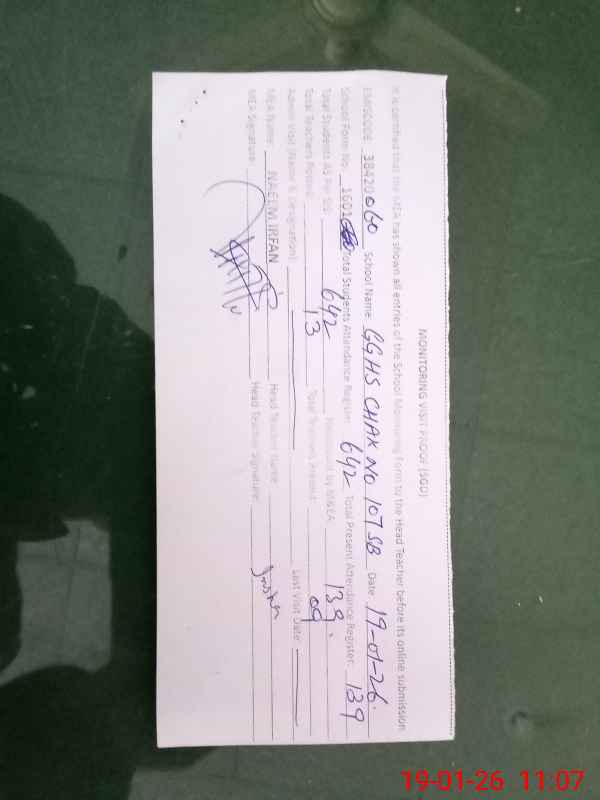 MONITORING VISIT PROOF (SGD)
It is certified that the MEA has shown all entries of the School Monitoring Form to the Head Teacher before its online submission
EMISCODE: 38420060 School Name: GGHS CHAK No 107 SB Date: 19-01-26
School Form No. 1601 Total Students Attendance Register: 642 Total Present Attendance Register: 139
Total Students AS Per SIS: 642 Present by M&EA 139
Total Teachers Posted: 13 Total Teachers Present: 09
Admin Visit (Name & Designation) Last Visit Date:
MEA Name: NAEEM IRFAN Head Teacher Name:
MEA Signature: Head Teacher Signature:
19-01-26 11:07